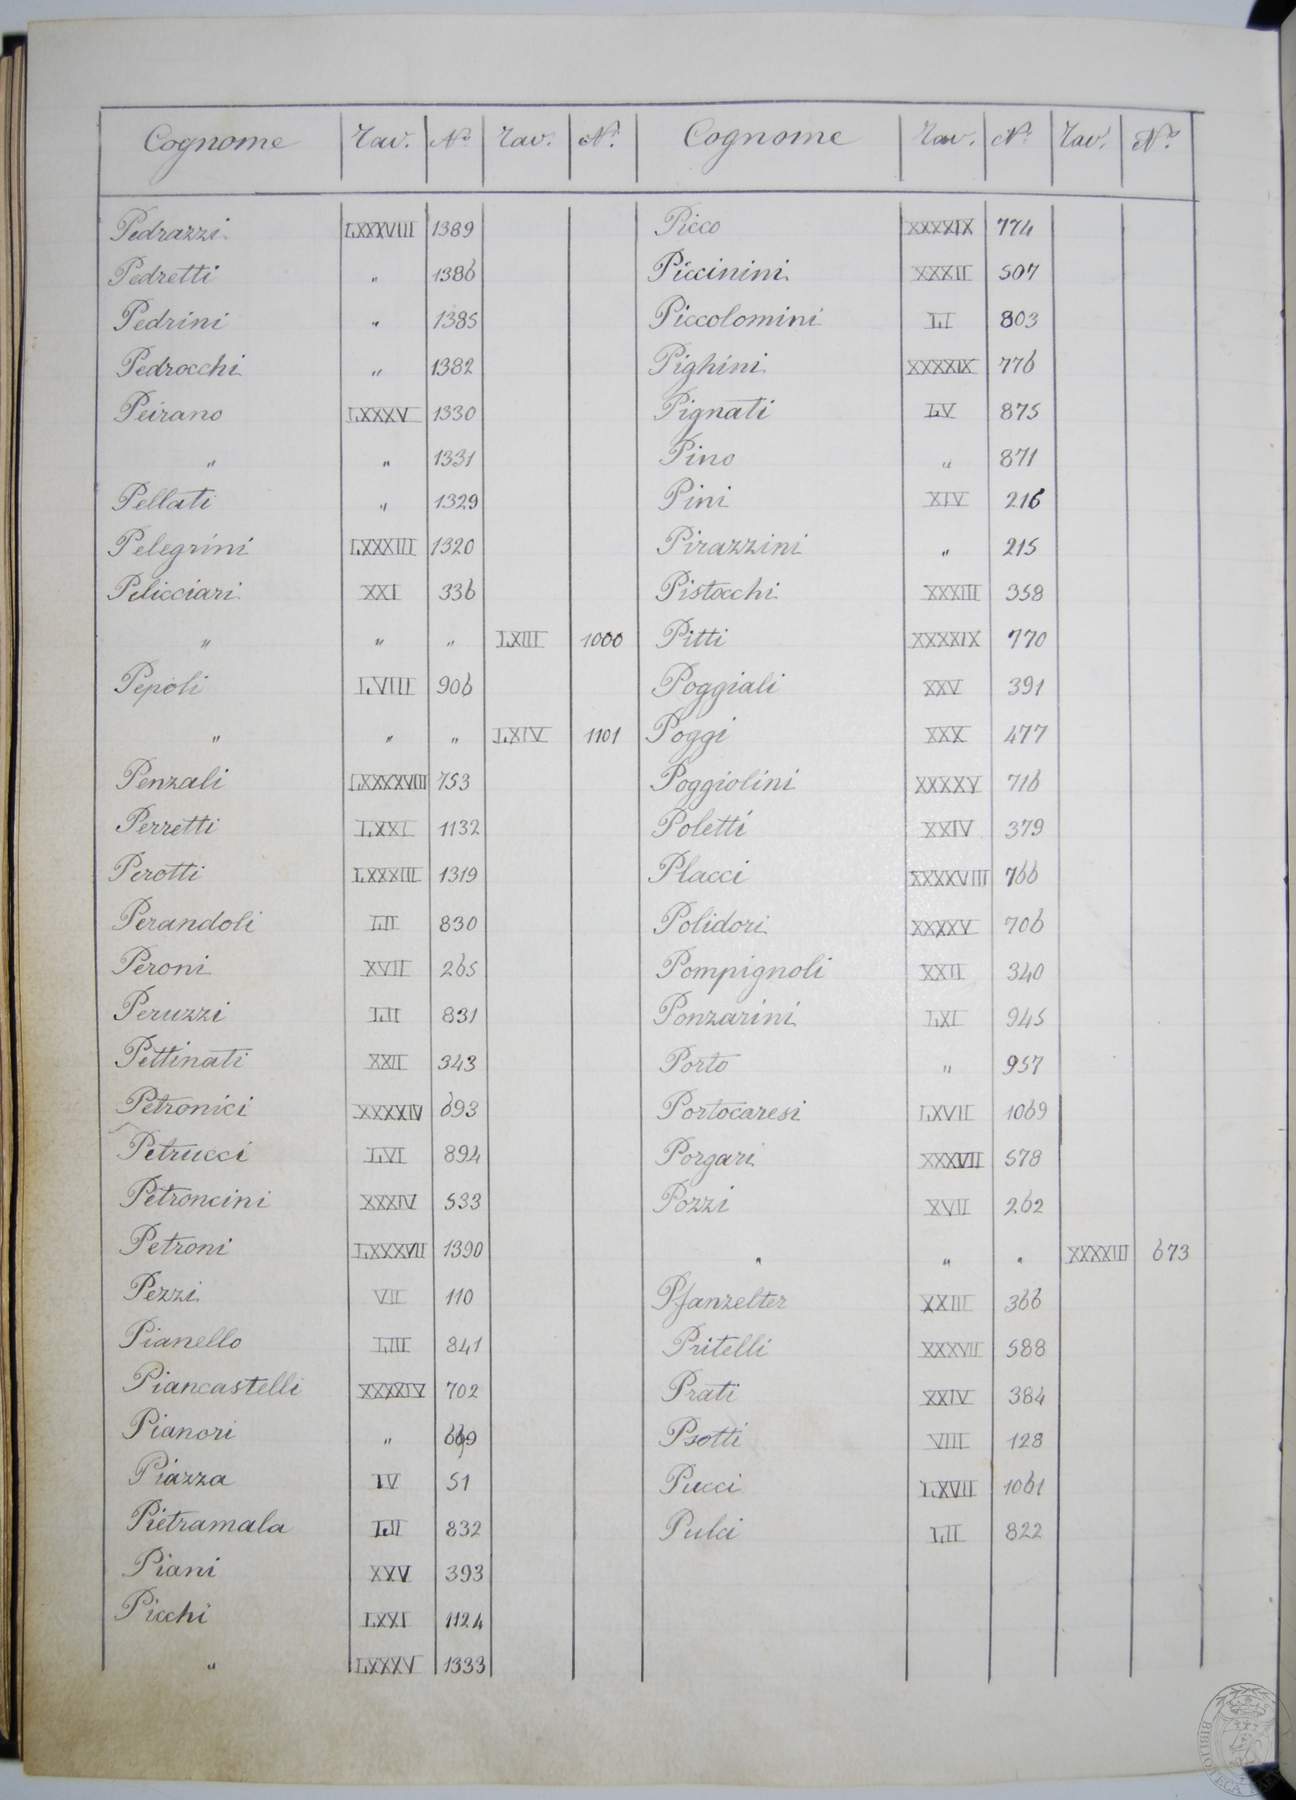 Cognome Tav. N.º Tav. N.º
Pedrazzi LXXXVIII 1389
Pedretti " 1386
Pedrini " 1385
Pedrocchi " 1382
Peirano LXXXV 1330
" " 1331
Pellati " 1329
Pelegrini LXXXIII 1320
Pelicciari XXI 336
" " " LXIII 1000
Pepoli LVIII 906
" " " LXIV 1101
Penzali LXXXXVIII 753
Perretti LXXI 1132
Perotti LXXXIII 1319
Perandoli LII 830
Peroni XVII 265
Peruzzi LII 831
Pettinati XXII 343
Petronici XXXXIV 693
Petrucci LVI 894
Petroncini XXXIV 533
Petroni LXXXVII 1390
Pezzi VII 110
Pianello LIII 841
Piancastelli XXXXIV 702
Pianori " 669
Piazza IV 51
Pietramala LII 832
Piani XXV 393
Picchi LXXI 1124
" LXXXV 1333
Cognome Tav. N.º Tav. N.º
Picco XXXXIX 774
Piccinini XXXII 507
Piccolomini LI 803
Pighini XXXXIX 776
Pignati LV 875
Pino " 871
Pini XIV 216
Pirazzini " 215
Pistocchi XXXIII 358
Pitti XXXXIX 770
Poggiali XXV 391
Poggi XXX 477
Poggiolini XXXXV 716
Poletti XXIV 379
Placci XXXXVIII 766
Polidori XXXXV 706
Pompignoli XXII 340
Ponzarini LXI 945
Porto " 957
Portocaresi LXVII 1069
Porgari XXXVII 578
Pozzi XVII 262
" " " XXXXIII 673
Pfanzelter XXIII 366
Pritelli XXXVII 588
Prati XXIV 384
Psotti VIII 128
Pucci LXVII 1061
Pulci LII 822
BIBLIOTECA